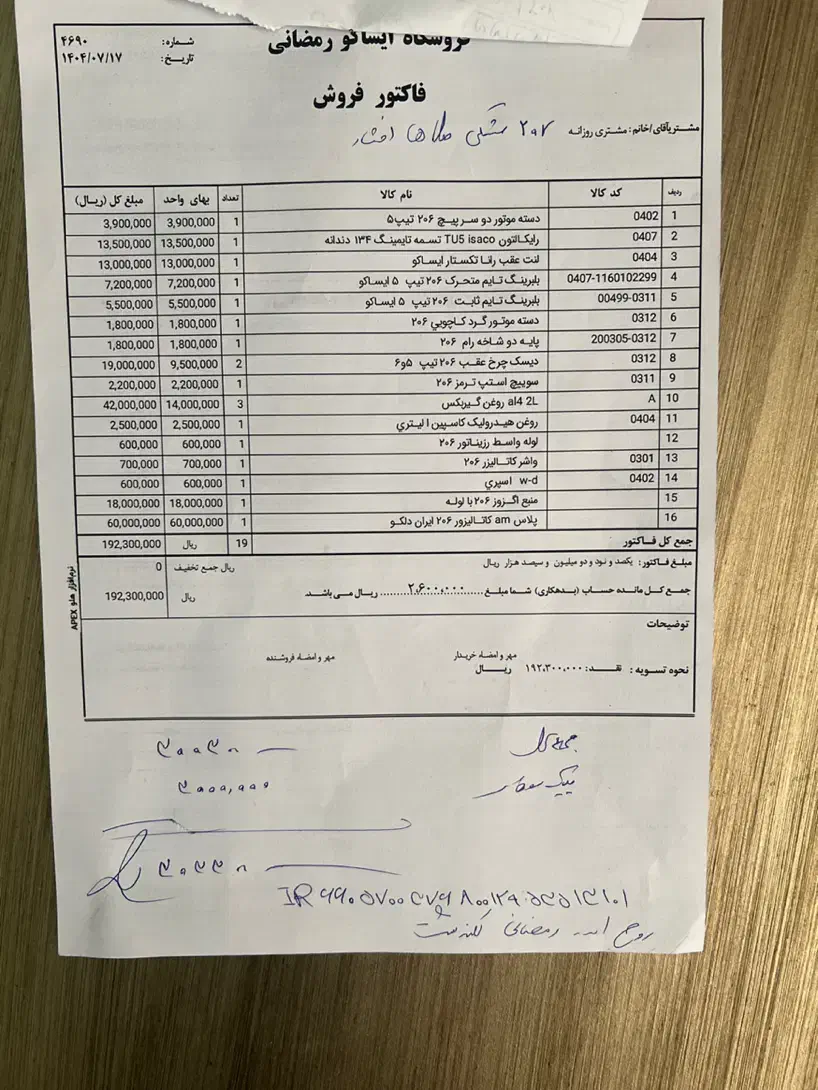 فروشگاه ایساکو رمضانی
شماره: ۴۶۹۰
تاریخ: ۱۴۰۴/۰۷/۱۷
فاکتور فروش
مشتریآقای/خانم: مشتری روزانه ۲۰۷ مشکی
ردیف کد کالا نام کالا تعداد بهای واحد مبلغ کل (ریال)
1 0402 دسته موتور دو سر پیچ ۲۰۶ تیپ۵ 1 3,900,000 3,900,000
2 0407 رایکالتون TU5 isaco تسمه تایمینگ ۱۳۴ دندانه 1 13,500,000 13,500,000
3 0404 لنت عقب رانا تکستار ایساکو 1 13,000,000 13,000,000
4 0407-1160102299 بلبرینگ تایم متحرک ۲۰۶ تیپ ۵ ایساکو 1 7,200,000 7,200,000
5 00499-0311 بلبرینگ تایم ثابت ۲۰۶ تیپ ۵ ایساکو 1 5,500,000 5,500,000
6 0312 دسته موتور گرد کاچویي ۲۰۶ 1 1,800,000 1,800,000
7 200305-0312 پایه دو شاخه رام ۲۰۶ 1 1,800,000 1,800,000
8 0312 دیسک چرخ عقب ۲۰۶ تیپ ۵و۶ 2 9,500,000 19,000,000
9 0311 سوییچ استپ ترمز ۲۰۶ 1 2,200,000 2,200,000
10 A al4 2L روغن گیربکس 3 14,000,000 42,000,000
11 0404 روغن هیدرولیک کاسپین ۱ لیتري 1 2,500,000 2,500,000
12 لوله واسط رزیناتور ۲۰۶ 1 600,000 600,000
13 0301 واشر کاتالیزر ۲۰۶ 1 700,000 700,000
14 0402 w-d اسپري 1 600,000 600,000
15 منبع اگزوز ۲۰۶ با لوله 1 18,000,000 18,000,000
16 پلاس am کاتالیزور ۲۰۶ ایران دلکو 1 60,000,000 60,000,000
جمع کل فاکتور 19 ریال 192,300,000
مبلغ فاکتور: یکصد و نود و دو میلیون و سیصد هزار ریال
ریال جمع تخفیف 0
جمع کل مانده حساب (بدهکاری) شما مبلغ ......۲,۶۰۰,۰۰۰...... ریال می باشد.
ریال 192,300,000
نرم‌افزار هلو APEX
توضیحات
مهر و امضاء خریدار
مهر و امضاء فروشنده
نحوه تسویه: نقد: ۱۹۲,۳۰۰,۰۰۰ ریال
جمع کل
پیک
رمضانی